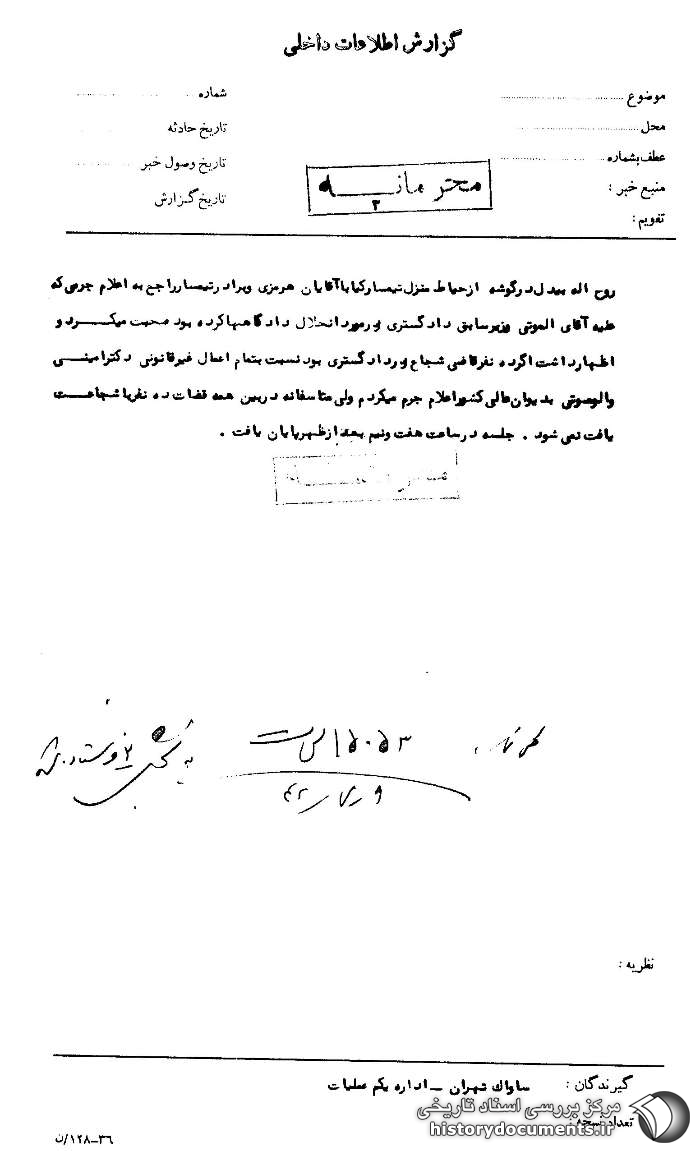 گزارش اطلاعات داخلی
موضوع
محل
عطف بشماره
منبع خبر :
تقویم :
شماره
تاریخ حادثه
تاریخ وصول خبر
تاریخ گزارش
محترمانه
۲
روح اله بیدل در گوشه از حیاط منزل تیمسار کیا با آقایان هرمزی و برادر تیمسار راجع به اعلام جرمی که
علیه آقای الموتی وزیر سابق دادگستری در مورد انحلال دادگاهها کرده بود صحبت میکرد و
اظهار داشت اگر ده نفر قاضی شجاع در دادگستری بود نسبت بتمام اعمال غیرقانونی دکتر امینی
و الموتی به دیوان عالی کشور اعلام جرم میکردم ولی متاسفانه در بین همه قضات ده نفر با شجاعت
یافت نمی شود . جلسه در ساعت هفت و نیم بعد از ظهر پایان یافت .
نظریه :
گیرندگان : ساواك تهران – اداره یکم عملیات
تعداد نسخه :
مرکز بررسی اسناد تاریخی
historydocuments.ir
۳۶–۱۲۸/ن